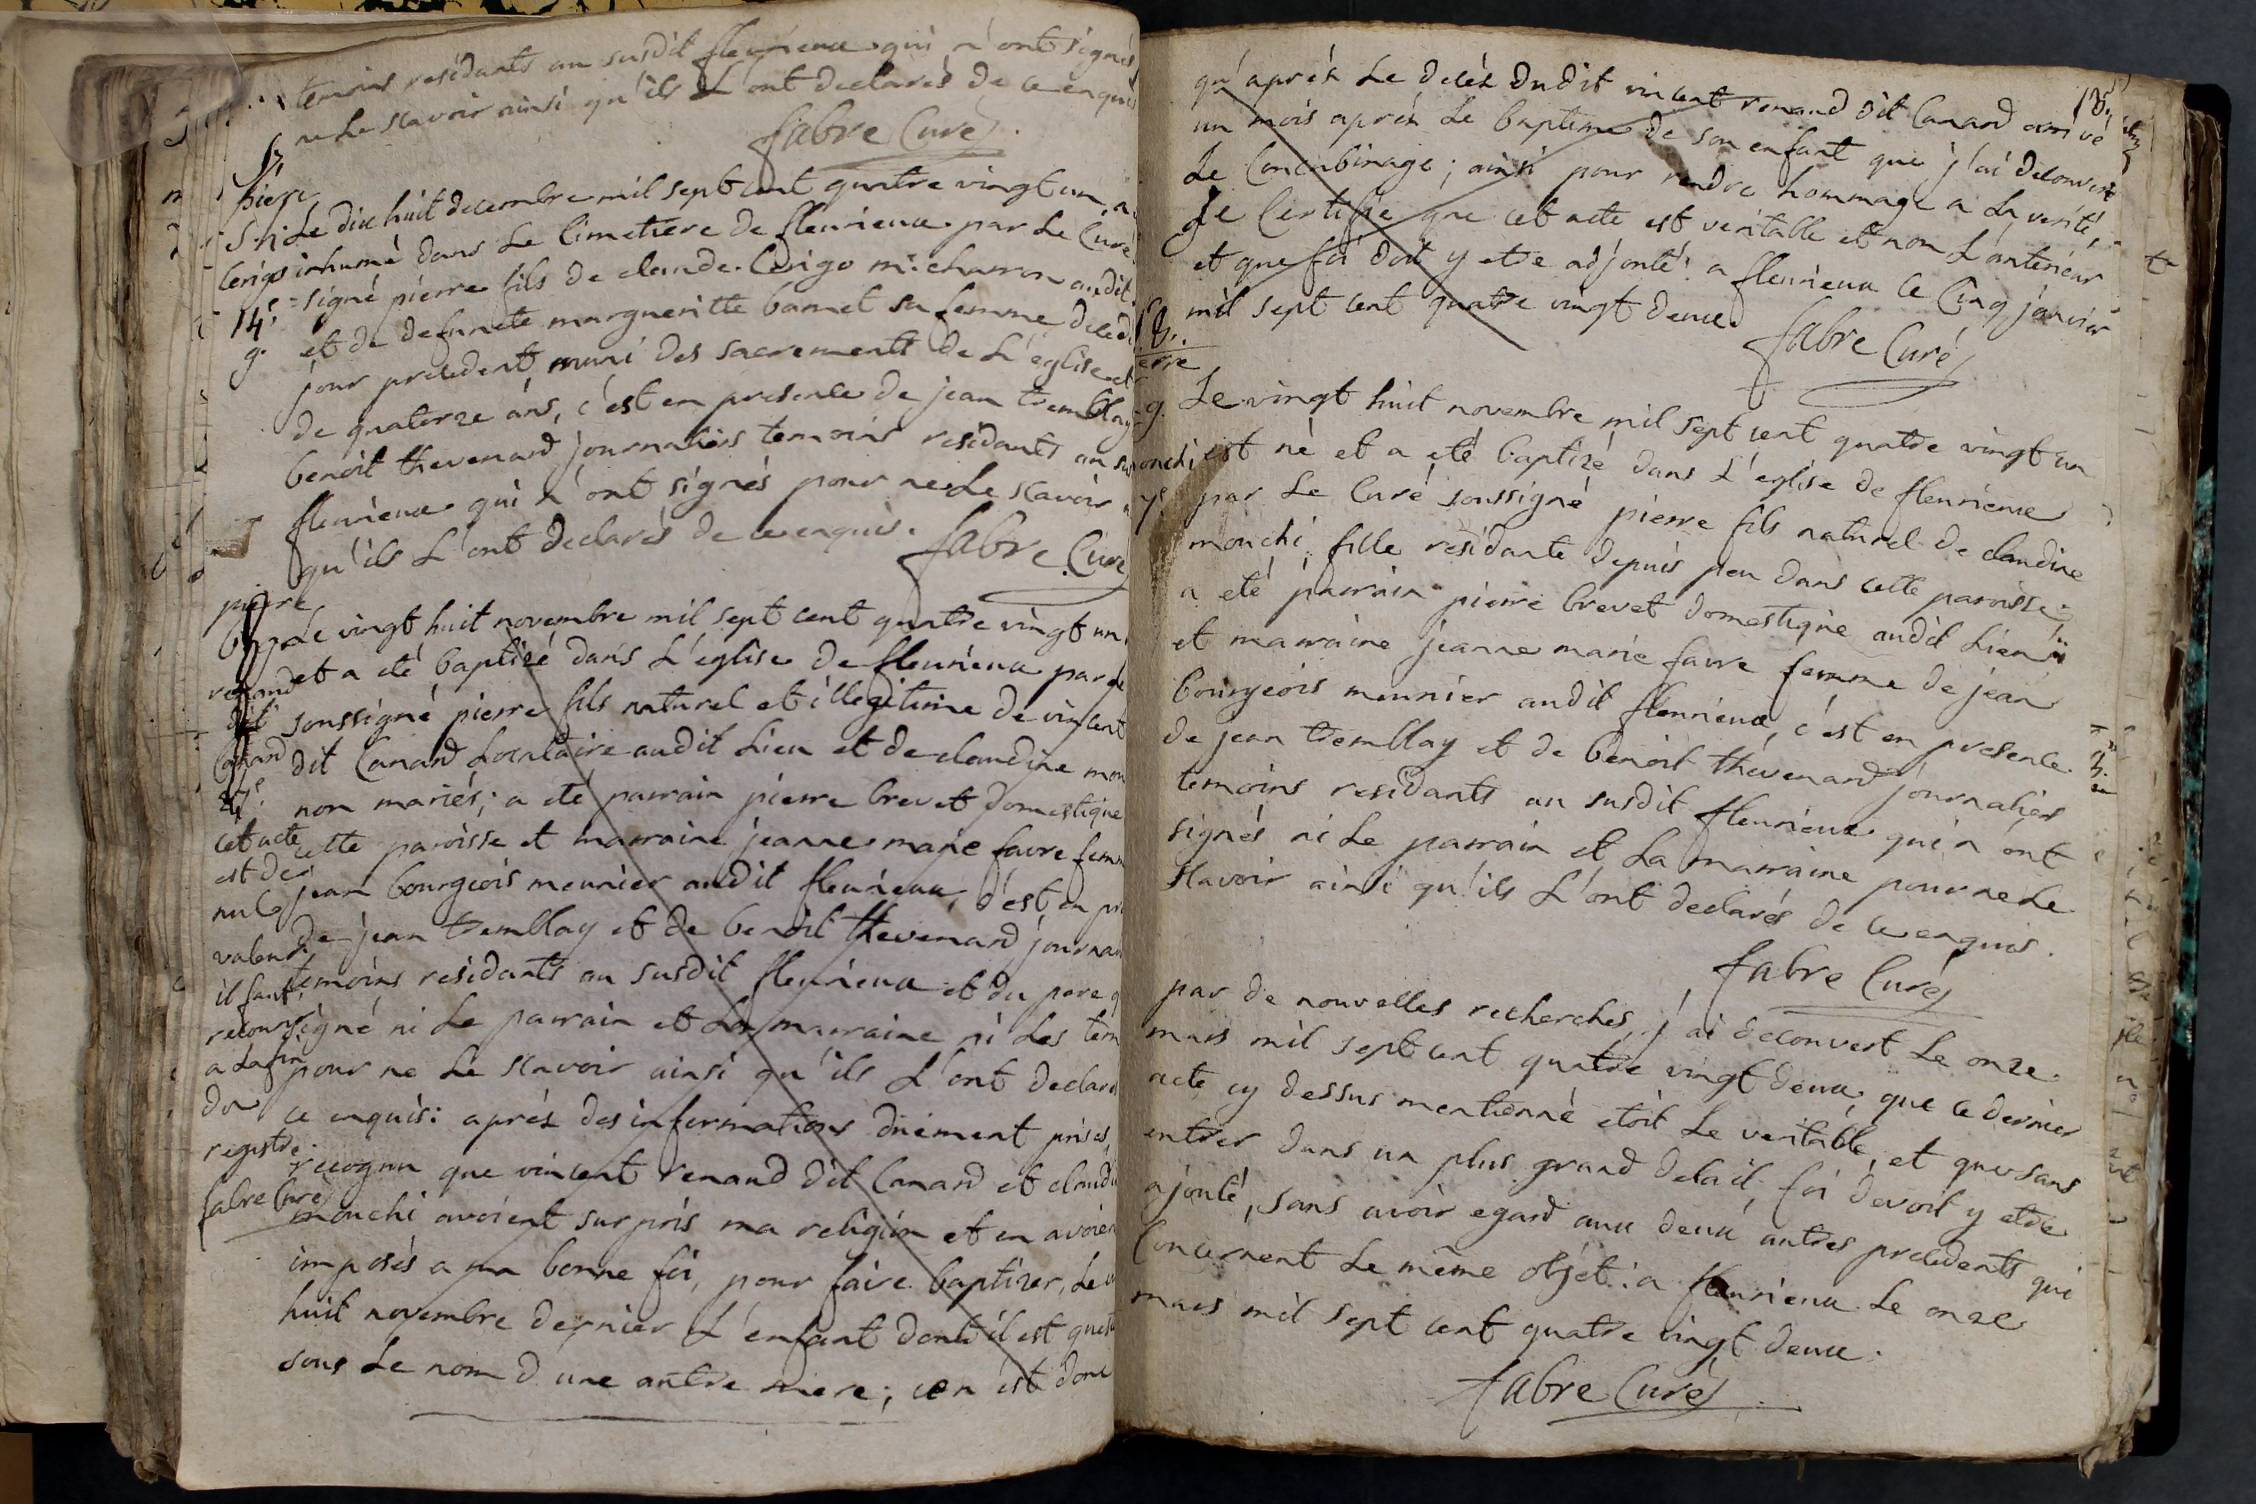 temoins residants au susdit fleurieux qui n'ont signés
ne le scavoir ainsi qu'ils L'ont declarés de ce enquis
fabre Curé.
S.
pierre
Le dix huit decembre mil sept cent quatre vingt un, a
Cerigo inhumé dans Le Cimetiere de fleurieux par Le Curé
14.s signé pierre fils de claude Cerigo m. charron audit
g. et de defuncte margueritte barnet sa femme decedé
jour precedent muni des sacrements de L'église et
de quatorze ans, c'est en presence de jean tremblay
benoit thevenard journaliers temoins residants au sus
fleurieux qui n'ont signés pour ne Le scavoir
qu'ils L'ont declarés de ce enquis. fabre Curé
pierre
Le vingt huit novembre mil sept cent quatre vingt un
renaud et a eté baptizé dans L'eglise de fleurieux par le
dit soussigné pierre fils naturel et illegitime de vincent
Canard dit Canard Locataire audit Lieu et de claudine mon
non mariés; a eté parrain pierre brevet domestique
cet acte cette paroisse et marraine jeanne marie favre femme
est de jean bourgeois meunier audit fleurieux, c'est en pre
nul
valeur de jean tremblay et de benoit thevenard journa
il faut temoins residants au susdit fleurieux et du pere q
recourir signé ni Le parrain et La marraine ni Les tem
a La fin pour ne Le scavoir ainsi qu'ils L'ont declaré
du ce enquis: aprés des informations duement prises,
registre. recognu que vincent renaud dit Canard et claudi
fabre Curé mouchi avoient surpris ma religion et en avoien
imposés a ma bonne foi, pour faire baptizer, Le v
huit novembre dernier L'enfant dont il est questi
sous Le nom d'une autre mere; cen est donc
qu'aprés Le decés dudit vincent renaud dit Canard arrivé
un mois aprés Le baptême de son enfant que j'ai decouvert
Le Concubinage; ainsi pour rendre hommage a La verité,
Je Certifie que cet acte est veritable et non L'anterieur
et que foi doit y etre adjouté: a fleurieux ce Cinq janvier
mil sept cent quatre vingt deux. fabre Curé
Le vingt huit novembre mil sept cent quatre vingt un
est né et a eté baptizé dans L'eglise de fleurieux
par Le Curé soussigné pierre fils naturel de claudine
mouchi fille residante depuis peu dans cette paroisse;
a eté parrain pierre brevet domestique audit Lieu
et marraine jeanne marie favre femme de jean
bourgeois meunier audit fleurieux, c'est en presence
de jean tremblay et de benoit thevenard journaliers
temoins residants au susdit fleurieux qui n'ont
signés ni Le parrain et La marraine pour ne Le
scavoir ainsi qu'ils L'ont declarés de ce enquis.
fabre Curé
par de nouvelles recherches, j'ai decouvert Le onze
mars mil sept cent quatre vingt deux, que ce dernier
acte cy dessus mentionné etoit Le veritable, et que sans
entrer dans un plus grand detail, foi devoit y etre
ajouté, sans avoir egard aux deux autres precedents qui
Concernent Le même objet: a fleurieux Le onze
mars mil sept cent quatre vingt deux.
fabre Curé